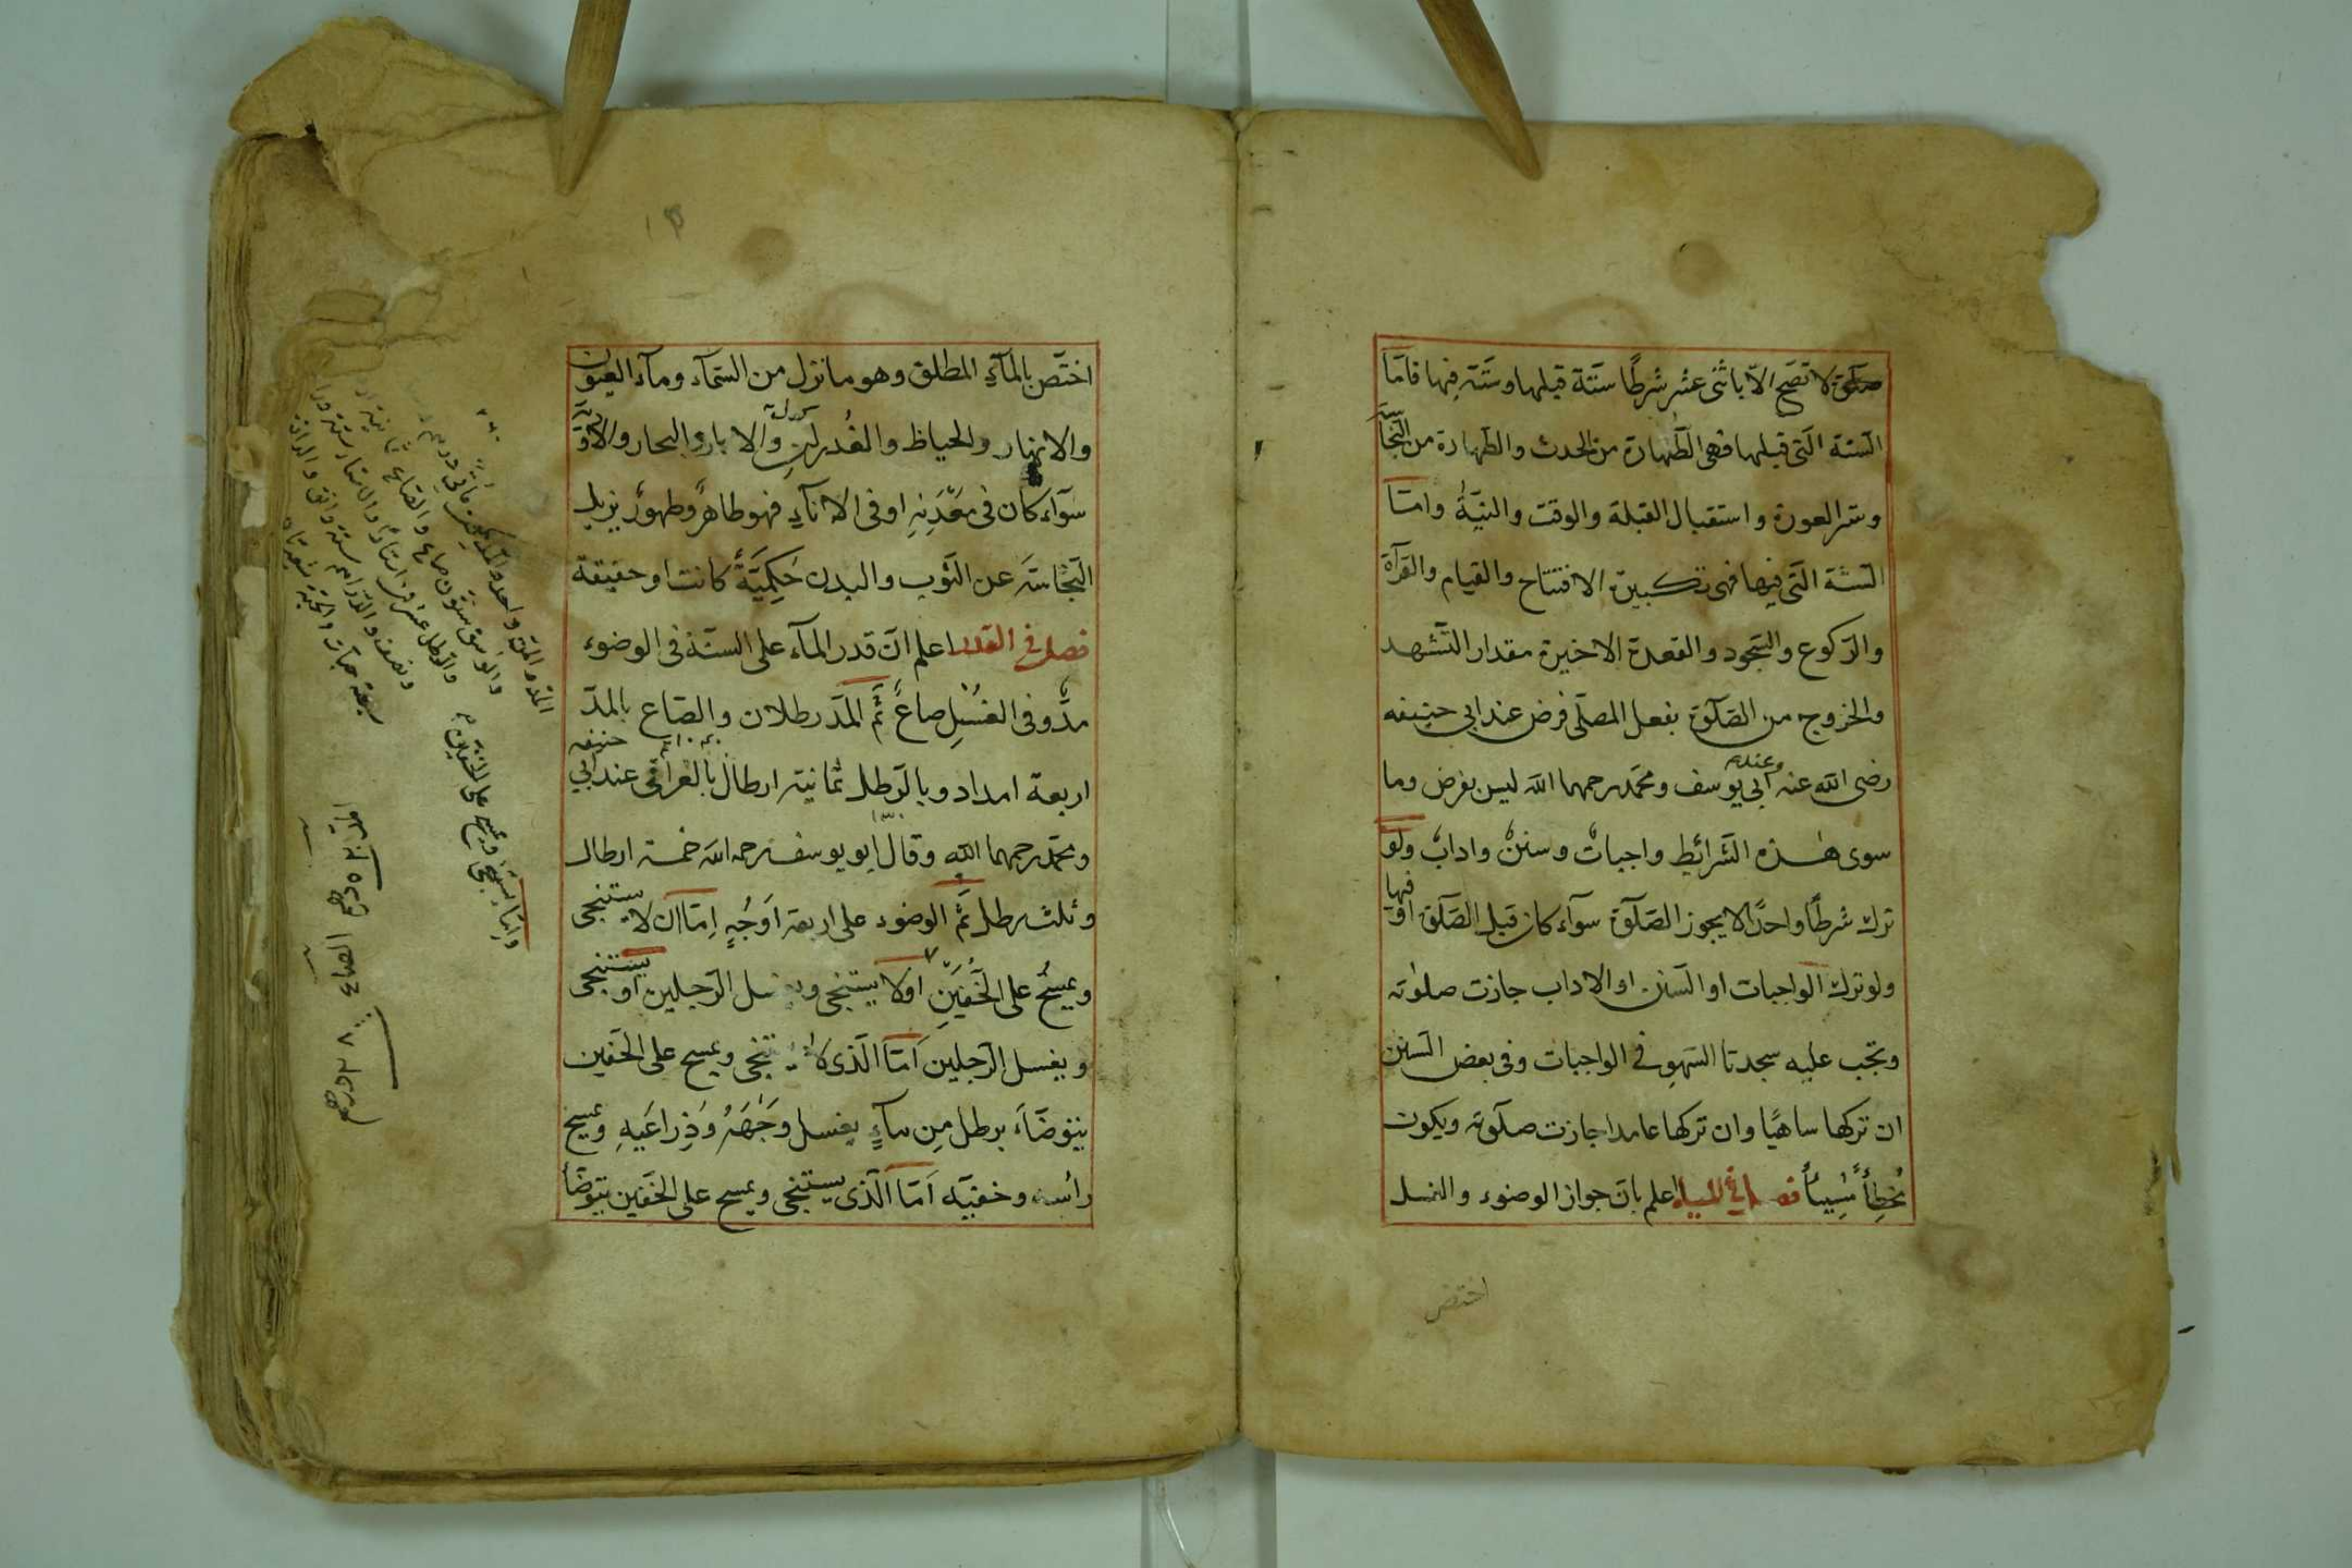 صلوة لا تصَح الّا باثنى عشر شرطًا ستّة قبلها وستّة فيها فامّا
الستة الّتى قبلها فهى الطّهارة من الحدث والطّهارة من النّجاسة
وستر العورة واستقبال القبلة والوقت والنيّةُ وامّا
الستّة الّتى فيها فهى تكبيرة الافتتاح والقيام والقرآة
والرّكوع والسّجود والقعدة الاخيرة مقدار التّشهد
والخروج من الصّلوة بفعل المصلّى فرض عند ابى حنيفه
رضى الله عنه وعند ابى يوسف ومحمّد رحمهما الله ليس بفرض وما
سوى هٰذه الشّرائط واجباتٌ وسننٌ وادابٌ ولو
ترك شرطًا واحدًا لا يجوز الصّلوة سوآء كان قبل الصّلوة او فيها
ولو ترك الواجبات او السّنن او الاداب جازت صلوته
وتجب عليه سجدتا السّهو فى الواجبات وفى بعض السّنن
ان تركها ساهيًا وان تركها عامدا جازت صلوته ويكون
مُخطِأً مُسِيأً فصل فى المياه اعلم بانّ جواز الوضوء والغسل
اختص
اختصّ بالمآءِ المطلق وهو ما نزل من السّمآء ومآء العيون
والانهار والحياظ والغُدرانِ والابار والبحار والاودية
سوآء كان فى مَعْدَنِهِ او فى الانآءِ فهو طاهرٌ وطهورٌ يزيل
النّجاسَة عن الثّوب والبدن حَكِمِيَّةً كانت او حقيقة
فصل فى القدر اعلم انّ قدر المآء على السنّة فى الوضوء
مدٌّ وفى الغُسْلِ صاعٌ ثمّ المدّ رطلان والصّاع بالمدّ
اربعة امداد وبالرّطل ثمانية ارطال بالعراقى عند ابى حنيفه
ومحمّد رحمهما الله وقال ابو يوسف رحمه الله خمسة ارطال
وثلث رطل ثمّ الوضوء على اربعة اَوْجُهٍ اِمّا ان لا يستنجى
ويمسحُ على الخُفّينِ او لا يستنجى ويغسل الرّجلين او يستنجى
ويغسل الرّجلين اَمّا الّذى لا يستنجى ويمسح على الخفّين
يتوضّاَء برطل مِن مآءٍ يغسل وَجْهَهُ وَذِراعَيهِ ويمسح
رأسه وخفيّه اَمّا الّذى يستنجى ويمسح على الخفّين يتوضّا
وامّا يستنجى ويمسح على الخفّين
الصاع